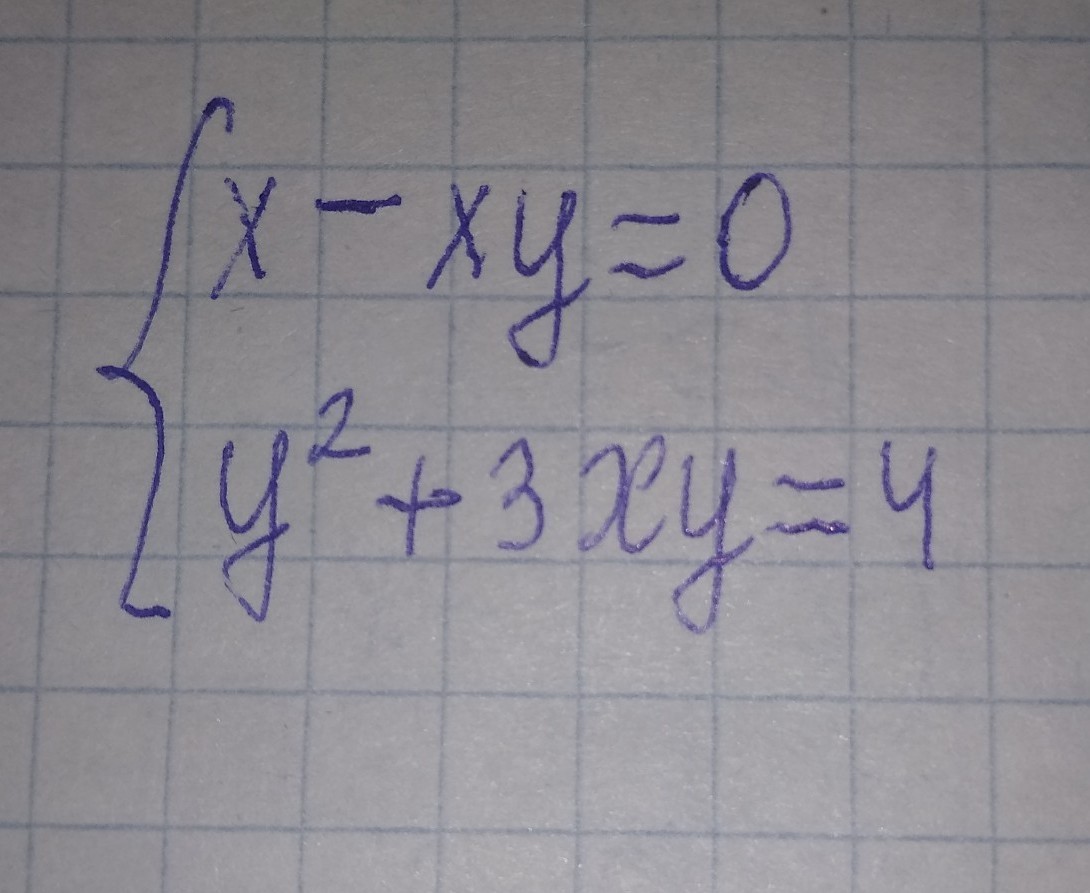 x - xy = 0
y² + 3xy = 4